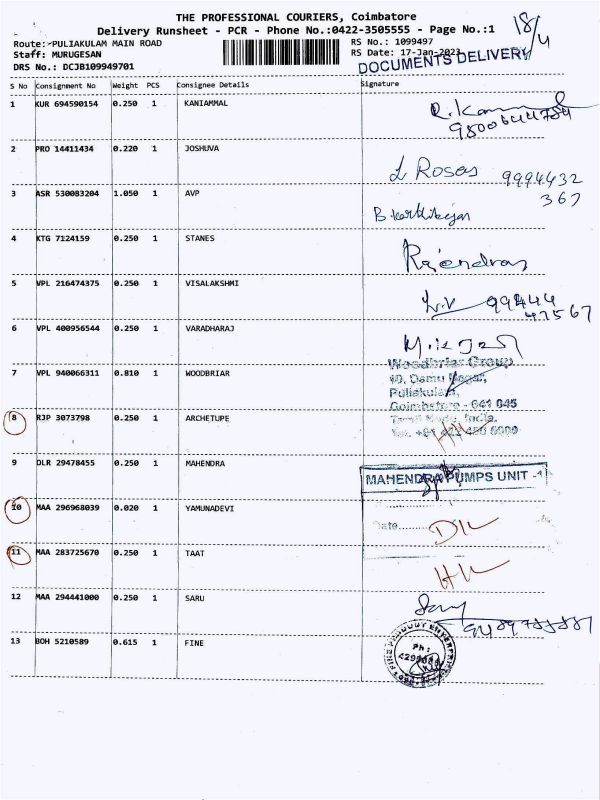 THE PROFESSIONAL COURIERS, Coimbatore
Delivery Runsheet - PCR - Phone No.:0422-3505555 - Page No.:1
18/4
Route:-PULIAKULAM MAIN ROAD RS No.: 1099497
Staff: MURUGESAN RS Date: 17-Jan-2023
DRS No.: DCJB109949701 DOCUMENTS DELIVERY
S No Consignment No Weight PCS Consignee Details Signature
1 KUR 694590154 0.250 1 KANIAMMAL
2 PRO 14411434 0.220 1 JOSHUVA
L Rosas 9994432
367
3 ASR 530083204 1.050 1 AVP
B karthikeyan
4 KTG 7124159 0.250 1 STANES
Rajendran
5 VPL 216474375 0.250 1 VISALAKSHMI
L.V 99444
47567
6 VPL 400956544 0.250 1 VARADHARAJ
7 VPL 940066311 0.810 1 WOODBRIAR
Woodbriar Group
Puliakulam,
Coimbatore - 641 045
Tamil Nadu, India.
8 RJP 3073798 0.250 1 ARCHETUPE
9 DLR 29478455 0.250 1 MAHENDRA
MAHENDRA PUMPS UNIT -1
10 MAA 296968039 0.020 1 YAMUNADEVI
Date
11 MAA 283725670 0.250 1 TAAT
12 MAA 294441000 0.250 1 SARU
13 BOH 5210589 0.615 1 FINE
Ph :